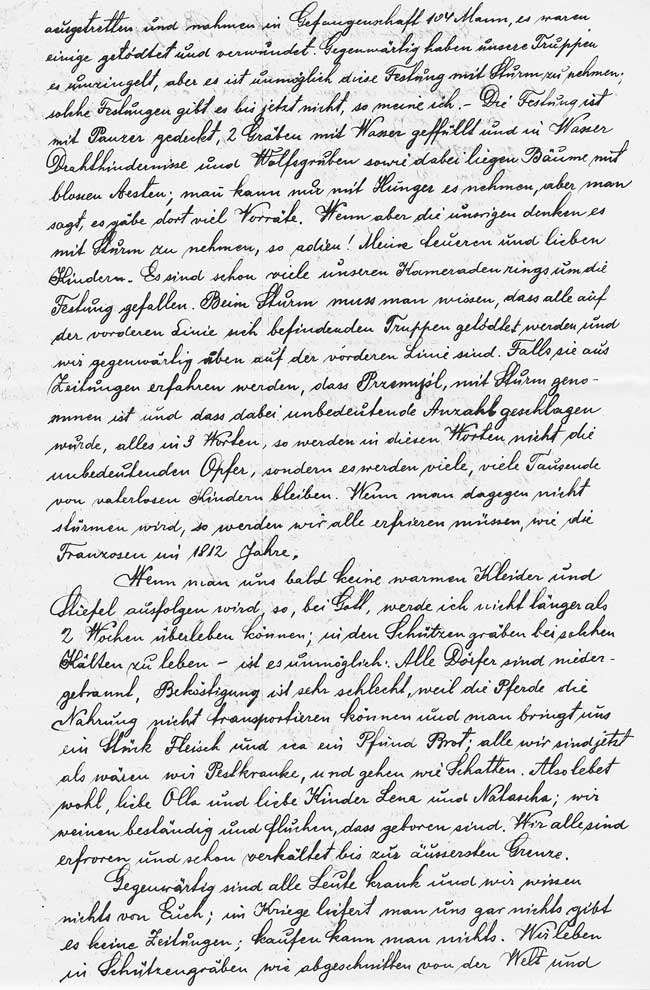 ausgetretten und nahmen in Gefangenschaft 104 Mann, es waren
einige getödtet und verwundet. Gegenwärtig haben unsere Truppen
es umzingelt, aber es ist unmöglich diese Festung mit Sturm zu nehmen;
solche Festungen gibt es bis jetzt nicht, so meine ich. – Die Festung ist
mit Panzer gedeckt, 2 Gräben mit Wasser geffüllt und in Wasser
Drahthindernisse und Wolfsgruben sowie dabei liegen Bäume mit
blossen Aesten; man kann nur mit Hunger es nehmen, aber man
sagt, es gäbe dort viel Vorräte. Wenn aber die unsrigen denken es
mit Sturm zu nehmen, so adieu! Meine teueren und lieben
Kindern. Es sind schon viele unseren Kameraden rings um die
Festung gefallen. Beim Sturm muss man wissen, dass alle auf
der vorderen Linie sich befindenden Truppen getödtet werden und
wir gegenwärtig eben auf der vorderen Linie sind. Falls sie aus
Zeitungen erfahren werden, dass Przemyśl, mit Sturm geno-
mmen ist und dass dabei unbedeutende Anzahl geschlagen
wurde, alles in 3 Worten, so werden in diesen Worten nicht die
unbedeutenden Opfer, sondern es werden viele, viele Tausende
von vaterlosen Kindern bleiben. Wenn man dagegen nicht
stürmen wird, so werden wir alle erfrieren müssen, wie die
Franzosen im 1812 Jahre.
Wenn man uns bald keine warmen Kleider und
Stiefel ausfolgen wird, so, bei Gott, werde ich nicht länger als
2 Wochen überleben können; in den Schützengräben bei solchen
Kälten zu leben – ist es unmöglich. Alle Dörfer sind nieder-
gebrannt, Beköstigung ist sehr schlecht, weil die Pferde die
Nahrung nicht transportieren können und man bringt uns
ein Stück Fleisch und ca ein Pfund Brot; alle wir sind jetzt
als wären wir Pestkranke, und gehen wie Schatten. Also lebet
wohl, liebe Olla und liebe Kinder Lena und Natascha; wir
weinen beständig und fluchen, dass geboren sind. Wir alle sind
erfroren und schon verkältet bis zur äussersten Grenze.
Gegenwärtig sind alle Leute krank und wir wissen
nichts von Euch; im Kriege liefert man uns gar nichts gibt
es keine Zeitungen; kaufen kann man nichts. Wir leben
in Schützengräben wie abgeschnitten von der Welt und